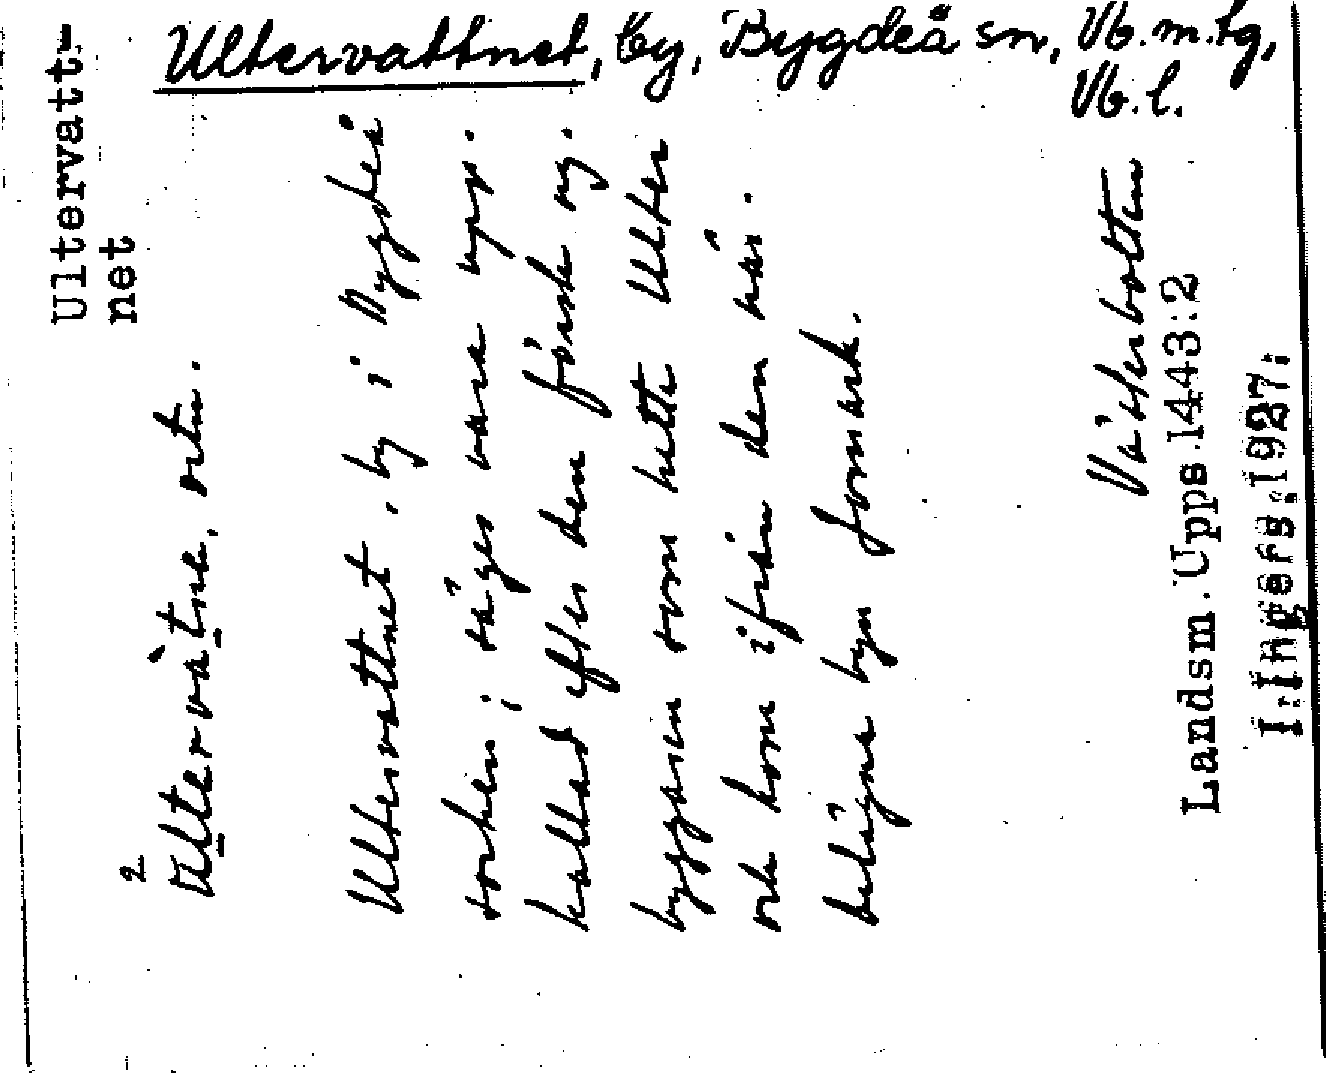 Ultervattnet, by, Bygdeå sn, Vb. m. tg,
Vb. l.
Ultervatt-
net
Ultervàtne, ortn.
Ultervattnet, by i Bygdeå
socken; säges vara upp-
kallad efter den förste ny-
byggaren som hette Ulter
och kom ifrån den när-
belägna byn Jomark.
Västerbotten
Landsm. Upps. 1443:2
I. Ingers 1927.